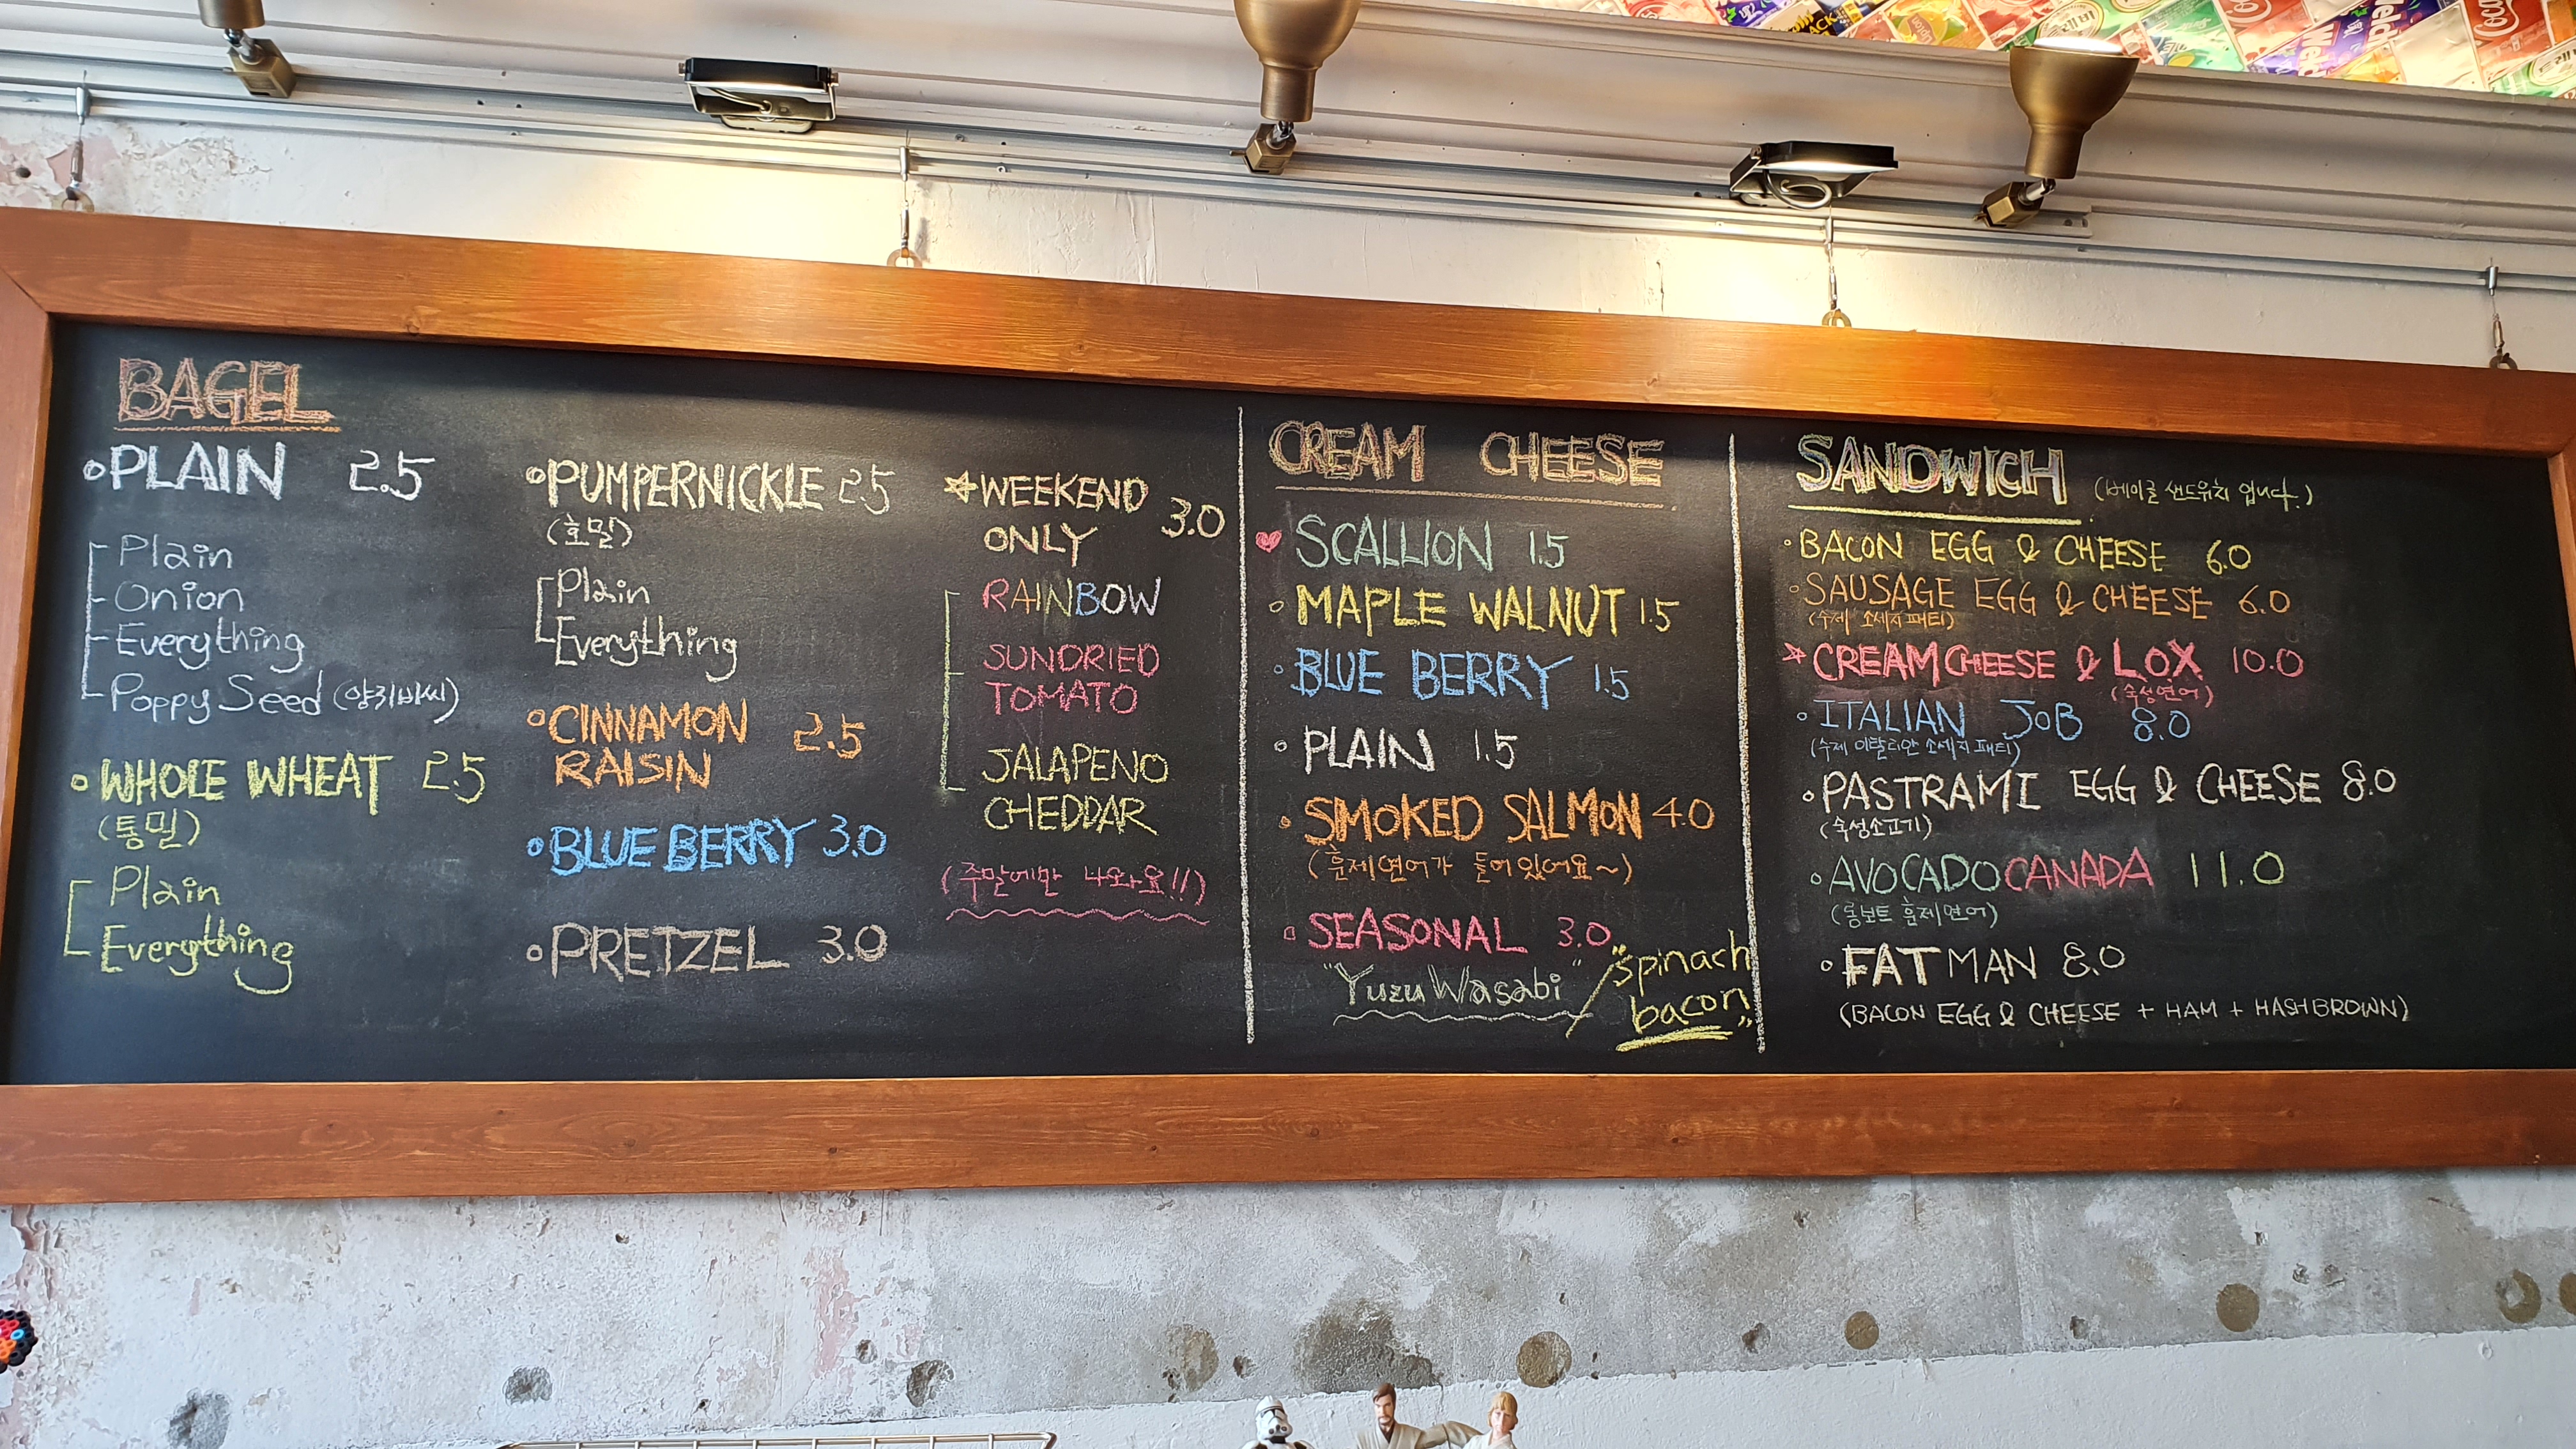 BAGEL
PLAIN 2.5
Plain
Onion
Everything
Poppy Seed (양귀비씨)
WHOLE WHEAT 2.5
(통밀)
Plain
Everything
PUMPERNICKLE 2.5
(호밀)
Plain
Everything
CINNAMON
RAISIN 2.5
BLUE BERRY 3.0
PRETZEL 3.0
WEEKEND
ONLY 3.0
RAINBOW
SUNDRIED
TOMATO
JALAPENO
CHEDDAR
(주말에만 나와요!!)
CREAM CHEESE
SCALLION 1.5
MAPLE WALNUT 1.5
BLUE BERRY 1.5
PLAIN 1.5
SMOKED SALMON 4.0
(훈제연어가 들어있어요~)
SEASONAL 3.0
"Yuzu Wasabi" / "spinach
bacon"
SANDWICH (베이글 샌드위치 입니다.)
BACON EGG & CHEESE 6.0
SAUSAGE EGG & CHEESE 6.0
(수제 소세지 패티)
CREAM CHEESE & LOX 10.0
(숙성연어)
ITALIAN JOB 8.0
(수제 이탈리안 소세지 패티)
PASTRAMI EGG & CHEESE 8.0
(숙성소고기)
AVOCADO CANADA 11.0
(롱보트 훈제연어)
FATMAN 8.0
(BACON EGG & CHEESE + HAM + HASHBROWN)